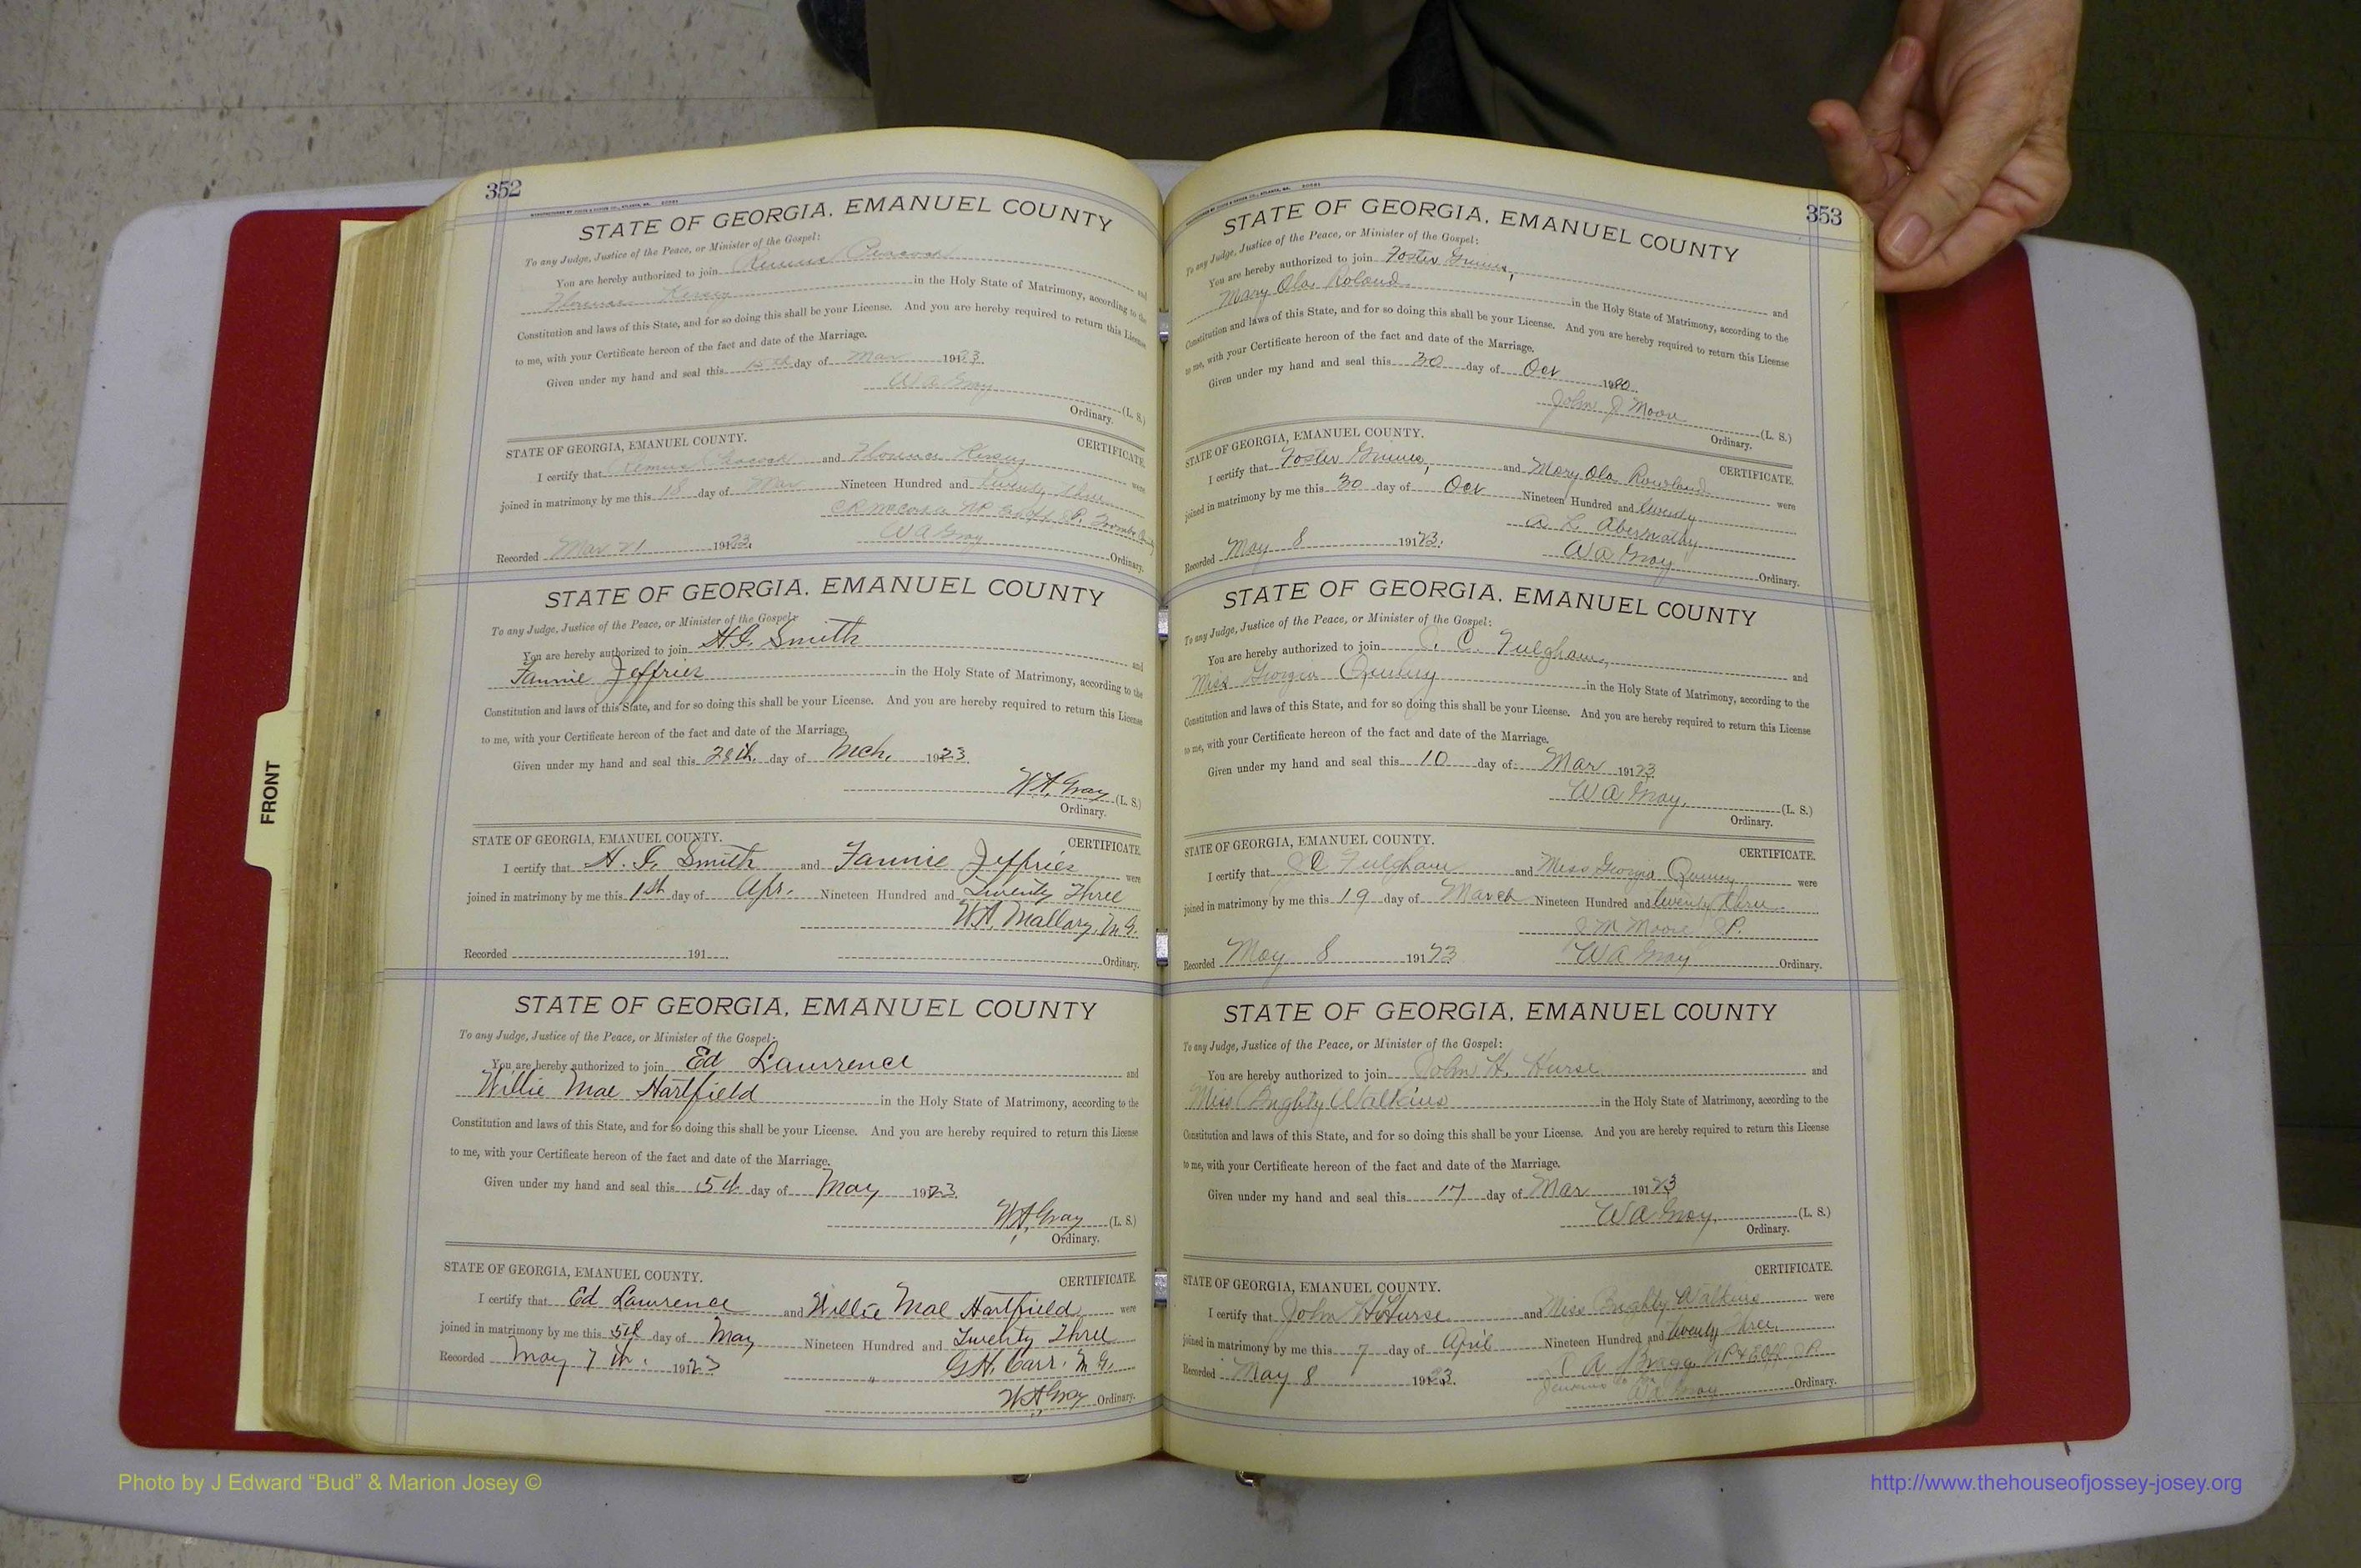 352
STATE OF GEORGIA, EMANUEL COUNTY
To any Judge, Justice of the Peace, or Minister of the Gospel:
You are hereby authorized to join Remus Peacock and
Florence Kersey in the Holy State of Matrimony, according to the
Constitution and laws of this State, and for so doing this shall be your License. And you are hereby required to return this License
to me, with your Certificate hereon of the fact and date of the Marriage.
Given under my hand and seal this 15th day of Mar 1923
W A Gray (L. S.)
Ordinary.
STATE OF GEORGIA, EMANUEL COUNTY. CERTIFICATE.
I certify that Remus Peacock and Florence Kersey were
joined in matrimony by me this 18 day of Mar Nineteen Hundred and twenty three
Recorded Mar 21 1923. W A Gray Ordinary.
STATE OF GEORGIA, EMANUEL COUNTY
To any Judge, Justice of the Peace, or Minister of the Gospel:
You are hereby authorized to join H.G. Smith and
Fannie Jeffries in the Holy State of Matrimony, according to the
Constitution and laws of this State, and for so doing this shall be your License. And you are hereby required to return this License
to me, with your Certificate hereon of the fact and date of the Marriage.
Given under my hand and seal this 28th day of Mch. 1923
W.A. Gray (L. S.)
Ordinary.
STATE OF GEORGIA, EMANUEL COUNTY. CERTIFICATE.
I certify that H. G. Smith and Fannie Jeffries were
joined in matrimony by me this 1st day of Apr. Nineteen Hundred and Twenty Three
W.A. Mallory, M.G.
Recorded 191 Ordinary.
STATE OF GEORGIA, EMANUEL COUNTY
To any Judge, Justice of the Peace, or Minister of the Gospel:
You are hereby authorized to join Ed Lawrence and
Willie Mae Hartfield in the Holy State of Matrimony, according to the
Constitution and laws of this State, and for so doing this shall be your License. And you are hereby required to return this License
to me, with your Certificate hereon of the fact and date of the Marriage.
Given under my hand and seal this 5th day of May 1923.
W.A. Gray (L. S.)
Ordinary.
STATE OF GEORGIA, EMANUEL COUNTY. CERTIFICATE.
I certify that Ed Lawrence and Willie Mae Hartfield were
joined in matrimony by me this 5th day of May Nineteen Hundred and Twenty Three
Recorded May 7th. 1923 G.H. Carr. M.G.
W.A. Gray Ordinary.
353
STATE OF GEORGIA, EMANUEL COUNTY
To any Judge, Justice of the Peace, or Minister of the Gospel:
You are hereby authorized to join Foster Grimes, and
Mary Ola Roland in the Holy State of Matrimony, according to the
Constitution and laws of this State, and for so doing this shall be your License. And you are hereby required to return this License
to me, with your Certificate hereon of the fact and date of the Marriage.
Given under my hand and seal this 30 day of Oct 1920
John J Moore (L. S.)
Ordinary.
STATE OF GEORGIA, EMANUEL COUNTY. CERTIFICATE.
I certify that Foster Grimes, and Mary Ola Rowland were
joined in matrimony by me this 30 day of Oct Nineteen Hundred and twenty
A L Abernathy
Recorded May 8 1923. W A Gray Ordinary.
STATE OF GEORGIA, EMANUEL COUNTY
To any Judge, Justice of the Peace, or Minister of the Gospel:
You are hereby authorized to join J. C. Fulgham, and
Miss Georgia in the Holy State of Matrimony, according to the
Constitution and laws of this State, and for so doing this shall be your License. And you are hereby required to return this License
to me, with your Certificate hereon of the fact and date of the Marriage.
Given under my hand and seal this 10 day of Mar 1923
W A Gray, (L. S.)
Ordinary.
STATE OF GEORGIA, EMANUEL COUNTY. CERTIFICATE.
I certify that J C Fulgham and Miss Georgia were
joined in matrimony by me this 19 day of March Nineteen Hundred and twenty three
J M Moore J P.
Recorded May 8 1923 W A Gray Ordinary.
STATE OF GEORGIA, EMANUEL COUNTY
To any Judge, Justice of the Peace, or Minister of the Gospel:
You are hereby authorized to join John H. Hurse and
Miss Brighty Watkins in the Holy State of Matrimony, according to the
Constitution and laws of this State, and for so doing this shall be your License. And you are hereby required to return this License
to me, with your Certificate hereon of the fact and date of the Marriage.
Given under my hand and seal this 17 day of Mar 1923
W A Gray, (L. S.)
Ordinary.
STATE OF GEORGIA, EMANUEL COUNTY. CERTIFICATE.
I certify that John H Hurse and Miss Brighty Watkins were
joined in matrimony by me this 7 day of April Nineteen Hundred and twenty three,
A Bragg NP & Exoff J P
Recorded May 8 1923. Jenkins Co W A Gray Ordinary.
FRONT
Photo by J Edward “Bud” & Marion Josey ©
http://www.thehouseofjossey-josey.org